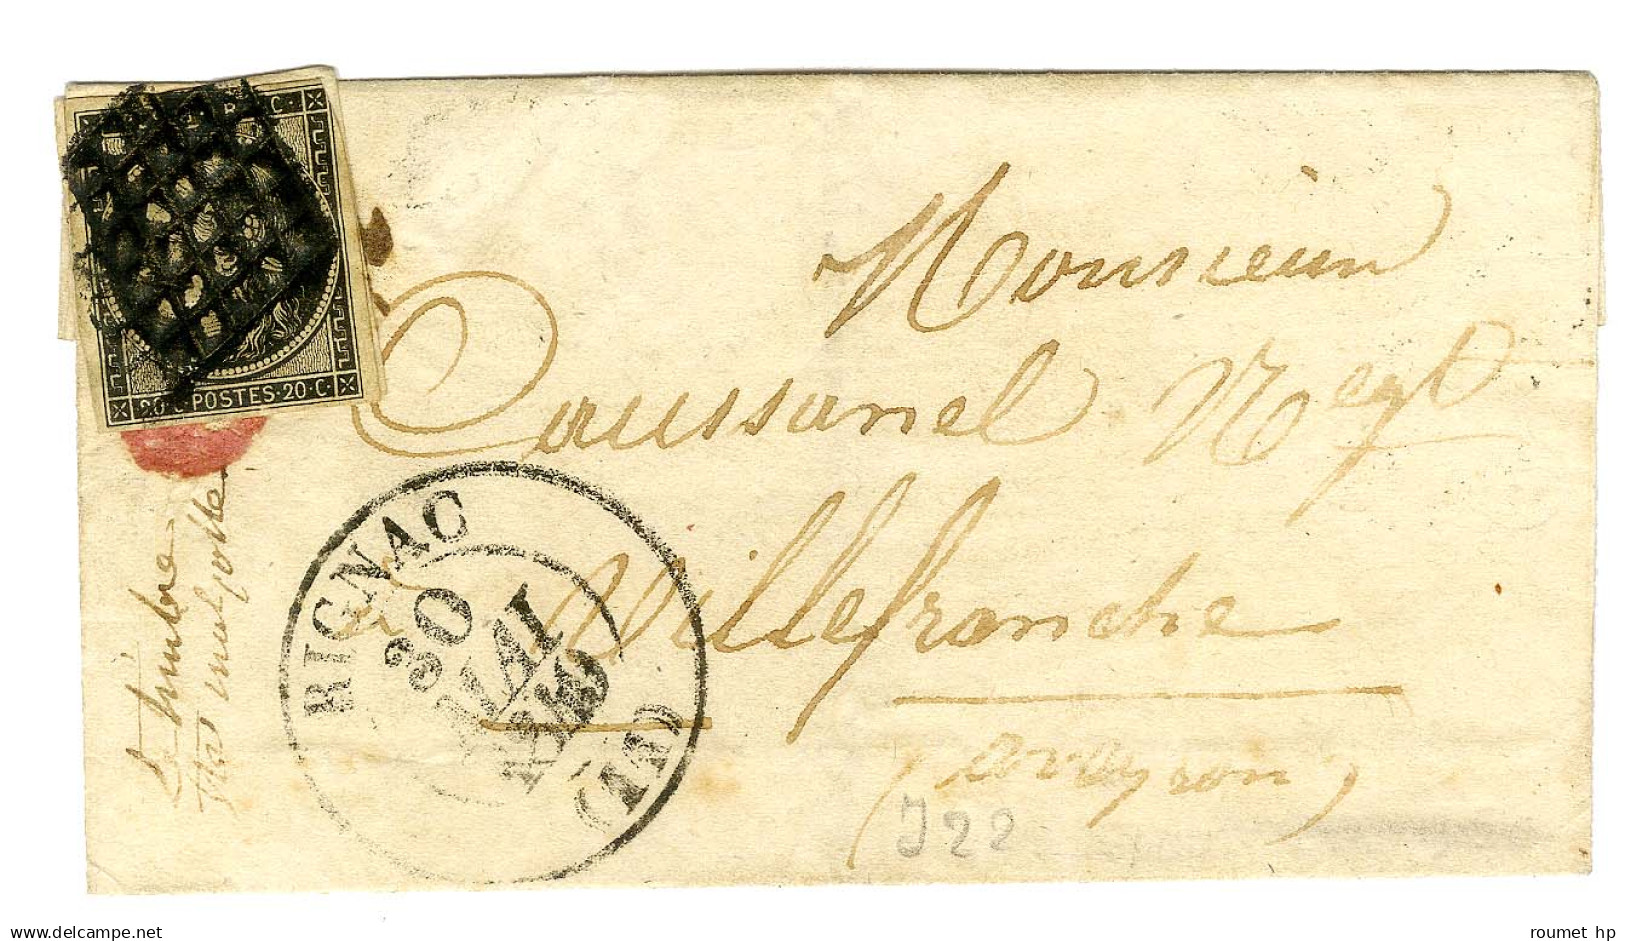 R C
20 · C · POSTES · 20 · C ·
Monsieur
Caussanel Negt
à Villefranche
(aveyron)
RIGNAC
30
MAI
1849
(11)
le timbre
J 22
delcampe.net
roumet hp